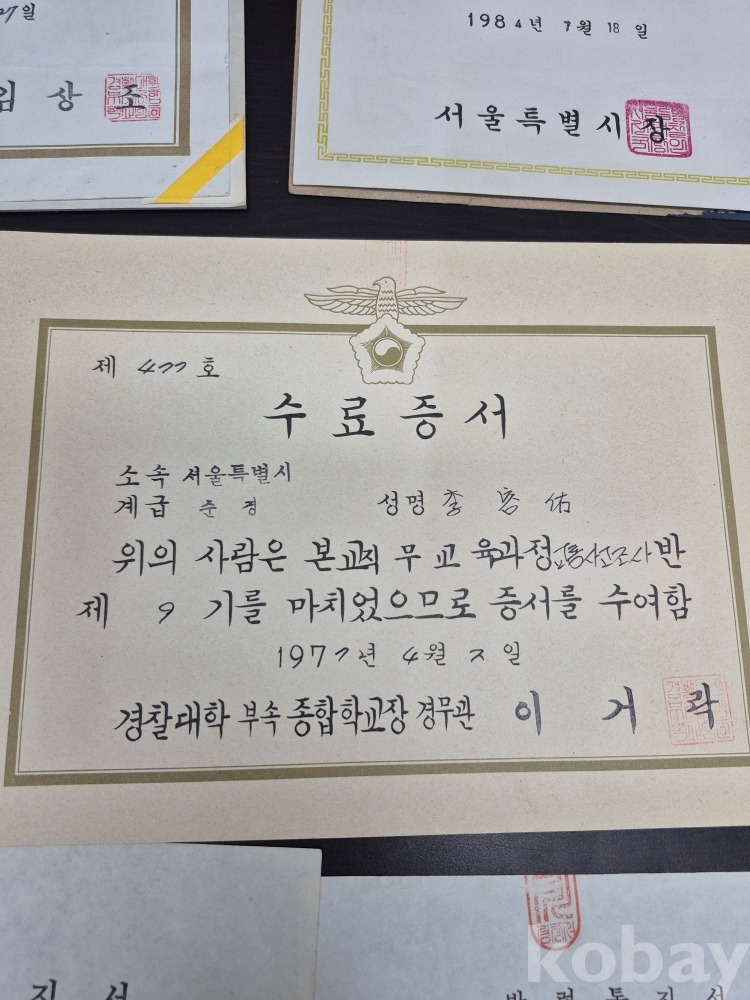 27일
임 상 조
1984년 7월 18일
서울특별시장
제 477 호
수료증서
소속 서울특별시
계급 순경 성명 李容佑
위의 사람은 본교직무교육과정교통사고조사반
제 9 기를 마치었으므로 증서를 수여함
1977년 4월 2일
경찰대학 부속 종합학교장 경무관 이 거 락
kobay